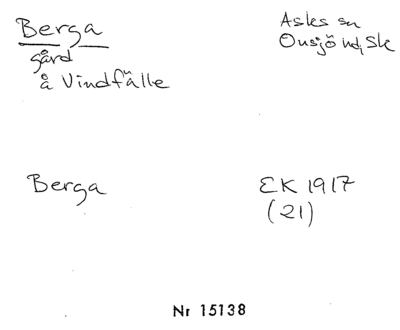 Berga
gård
å Vindfälle
Asks sn
Onsjö hd, Sk
Berga
EK 1917
(21)
Nr 15138